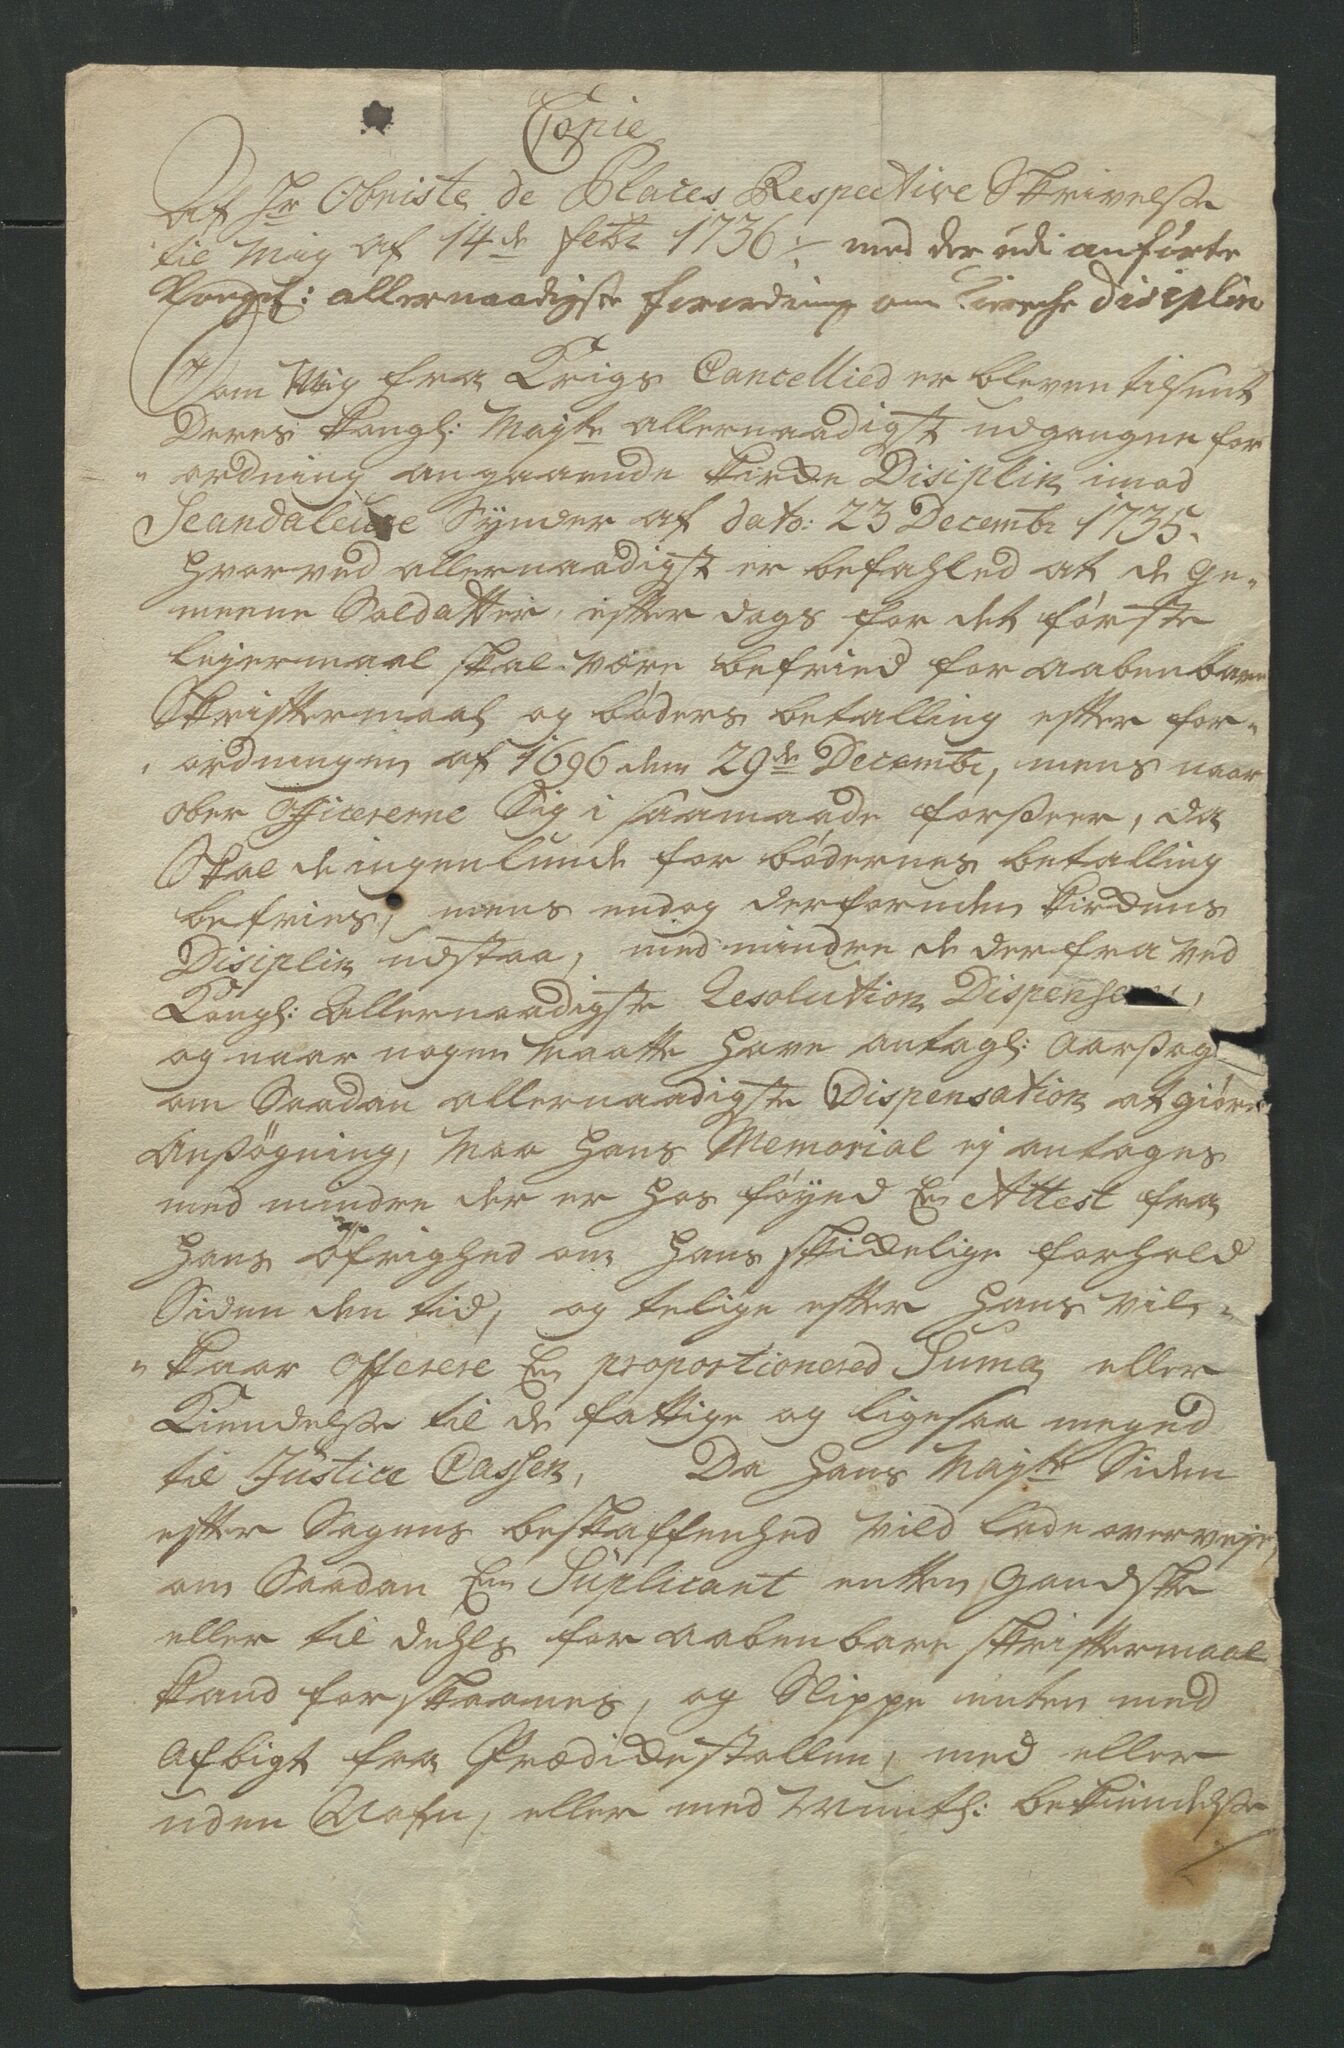 Copie
Af Hr Obriste de Places Respective Skrivelsse
til Mig af 14de Febr 1736 :/ med der udi anførte
Kongl: allernaadigste forordning om Kierche Disciplin
Som Mig fra Krigs Cancellied er bleven tilsent
Deres Kongl: Mayts allernaadigst udgangne for
ordning angaaende Kircke Disiplin imod
Scandaleuse Synder af dato: 23 Decembr 1735.
hvorved allernaadigst er befahled at de ge-
meene Soldatter, efter dags for det første
Lejermaal skal være befried for aabenbare
Skriftermaal og bøders betalling efter for-
ordningen af 1696 den 29de Decembr, mens naar
ober Officererne Sig i saamaade forsseer, da
Skal de ingenlunde for bødernes betalling
befries, mens endog derforuden Kirckens
Disiplin udstaa, med mindre de derfra ved
Kongl: Allernaadigste Resolution Dispenseres,
og naar nogen Maatte have antagl: Aarssag
om Saadan allernaadigste Dispensation at giøre
Anssøgning, Maa hans Memorial ej antages
med mindre der er hos føyed En Attest fra
hans Øfrighed om hans skickelige forhold
Siden den tid, og telige efter hans Vil-
kaar offerere En proportionered Suma eller
Kiendelsse til de fattige og ligesaa meged
til Justice Cassen, Da hans Mayts Siden
efter Sagens beskaffenhed Vild lade overveje,
om Saadan En Suplicant enten gandske
eller til dehls for aabenbare skriftermaal
kand forskaanes, og Slippe enten med
Afbigt fra Prædickestollen, med eller
uden Nafn, eller med Mundtl: bekiendelsse